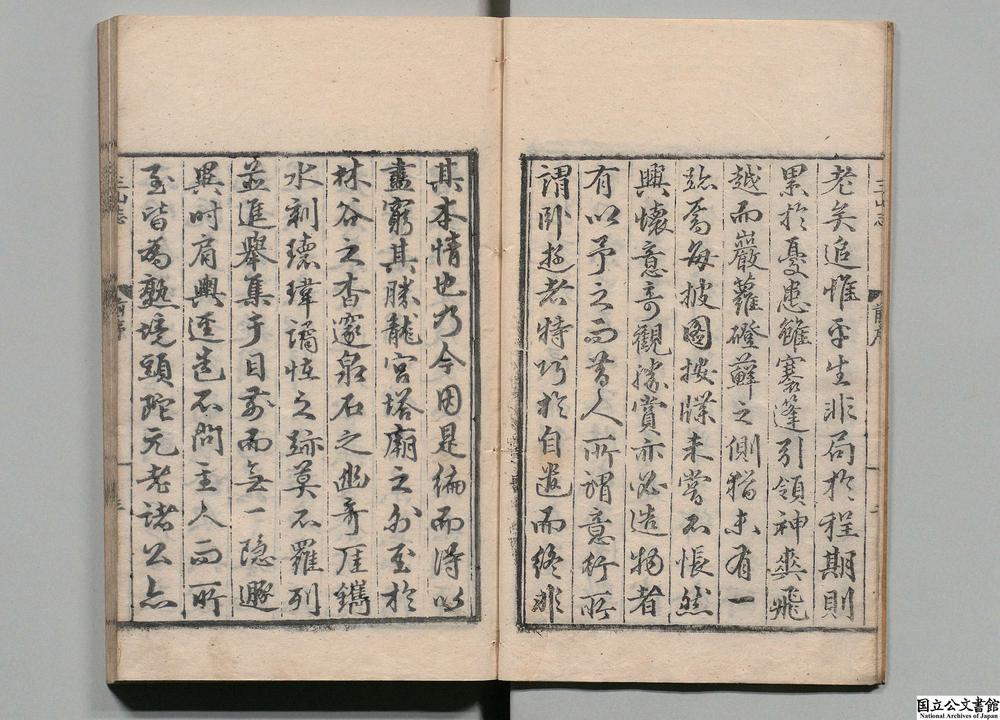 老矣追惟平生非局於程期則
累於憂患雖褰蓬引領神爽飛
越而巖蘿磴蘚之側猶未有一
跡焉每披圖按牒未嘗不悵然
興懷意奇觀勝賞亦必造物者
有以予之而昔人所謂意行所
謂臥遊者特巧於自遣而終非
其本情也乃今因是編而得以
盡窮其勝龍宮塔廟之外至於
林谷之杳邃泉石之幽奇厓鐫
水刻瓌瑋譎怪之跡莫不羅列
並進舉集于目前而無一隱遯
異時肩輿逕造不問主人而所
至皆為熟境頭陀元老諸公亦
三山志
前序
三山志
前序
国立公文書館
National Archives of Japan